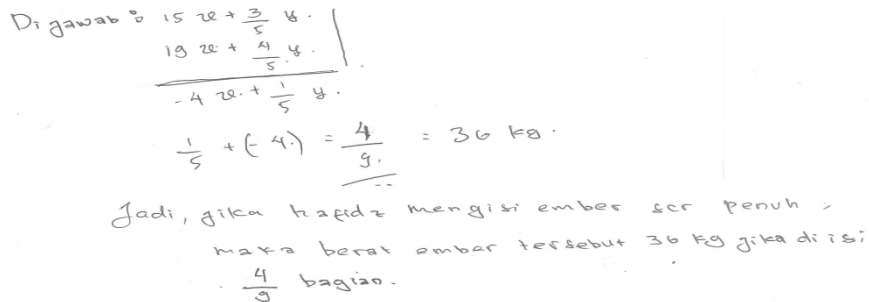 Dijawab : 15 x + 3/5 y.
19 x + 4/5 y.
-4 x. + 1/5 y.
1/5 + (-4.) = 4/9. = 36 kg.
Jadi, jika hafidz mengisi ember scr penuh,
maka berat ember tersebut 36 kg jika di isi
4/9 bagian.